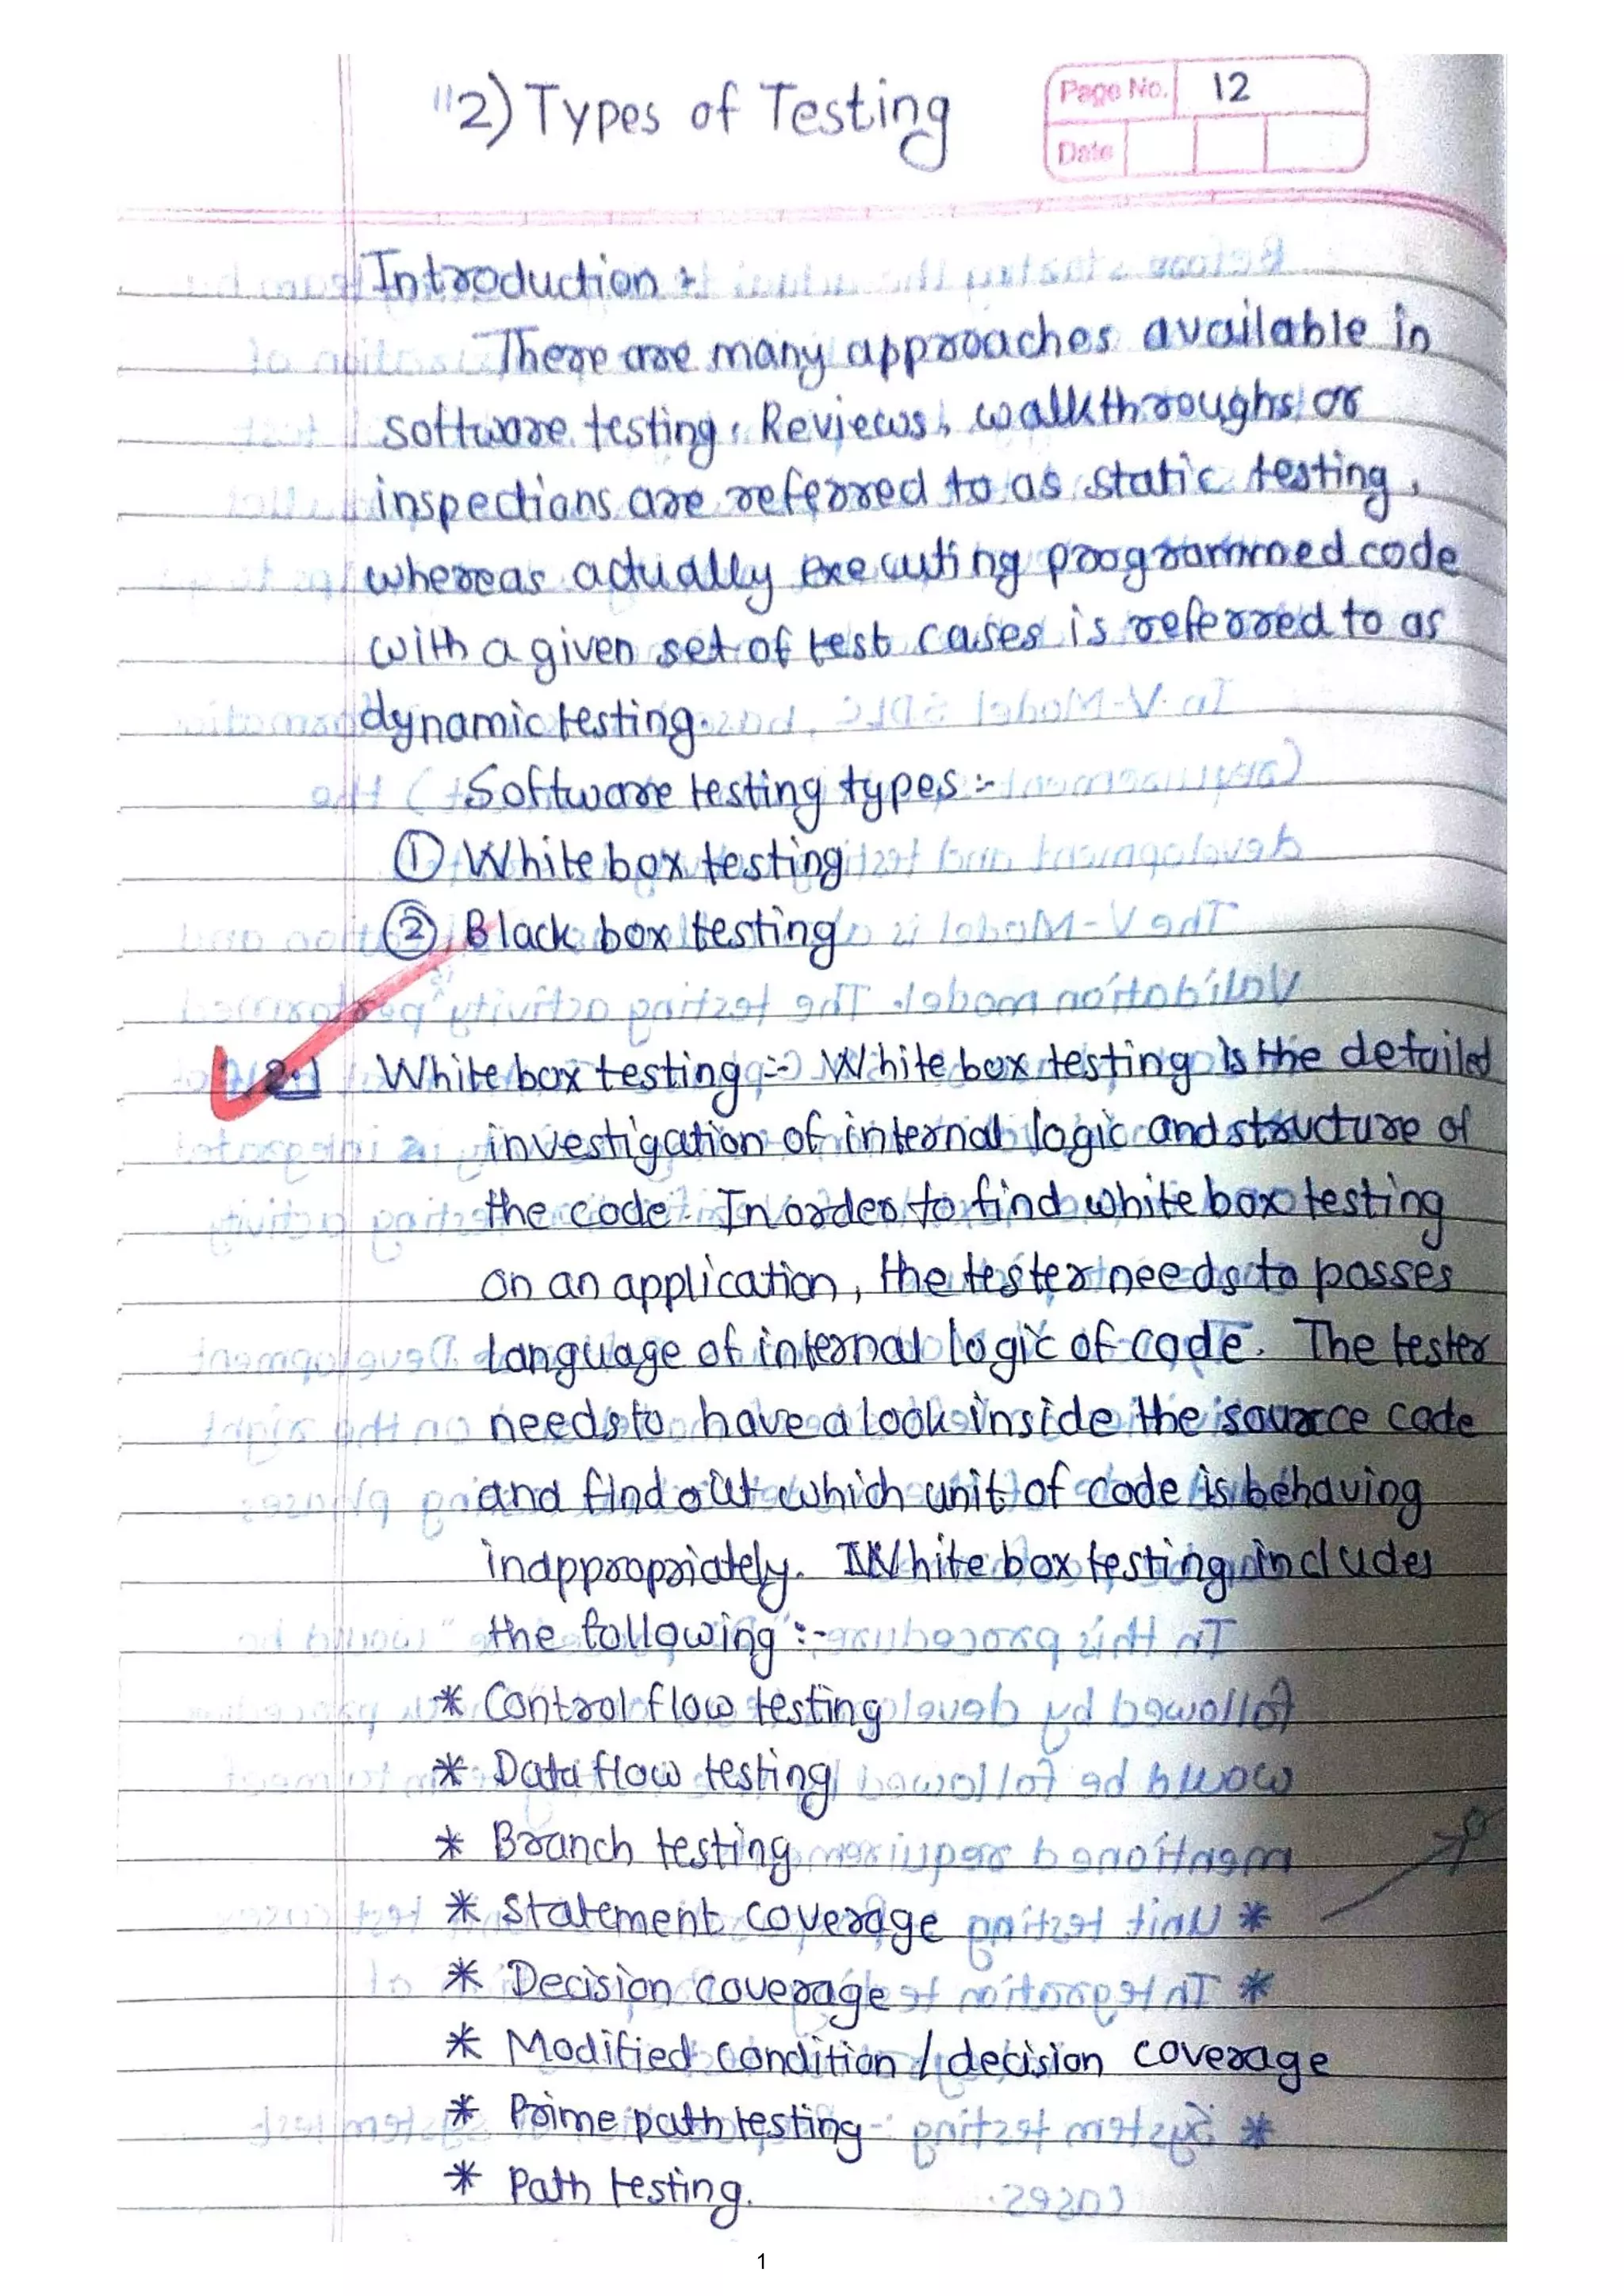 "2) Types of Testing
Page No. 12
Date
Introduction :
There are many approaches available in
software testing. Reviews, walkthroughs or
inspections are referred to as static testing,
whereas actually executing programmed code
with a given set of test cases is referred to as
dynamic testing.
Software testing types :-
① White box testing
② Black box testing
2.1 White box testing :- White box testing is the detailed
investigation of internal logic and structure of
the code. In order to find white box testing
on an application, the tester needs to posses
language of internal logic of code. The tester
needs to have a look inside the source code
and find out which unit of code is behaving
inappropriately. White box testing includes
the following :-
* Control flow testing
* Data flow testing
* Branch testing
* Statement coverage
* Decision coverage
* Modified condition / decision coverage
* Prime path testing
* Path testing.
1